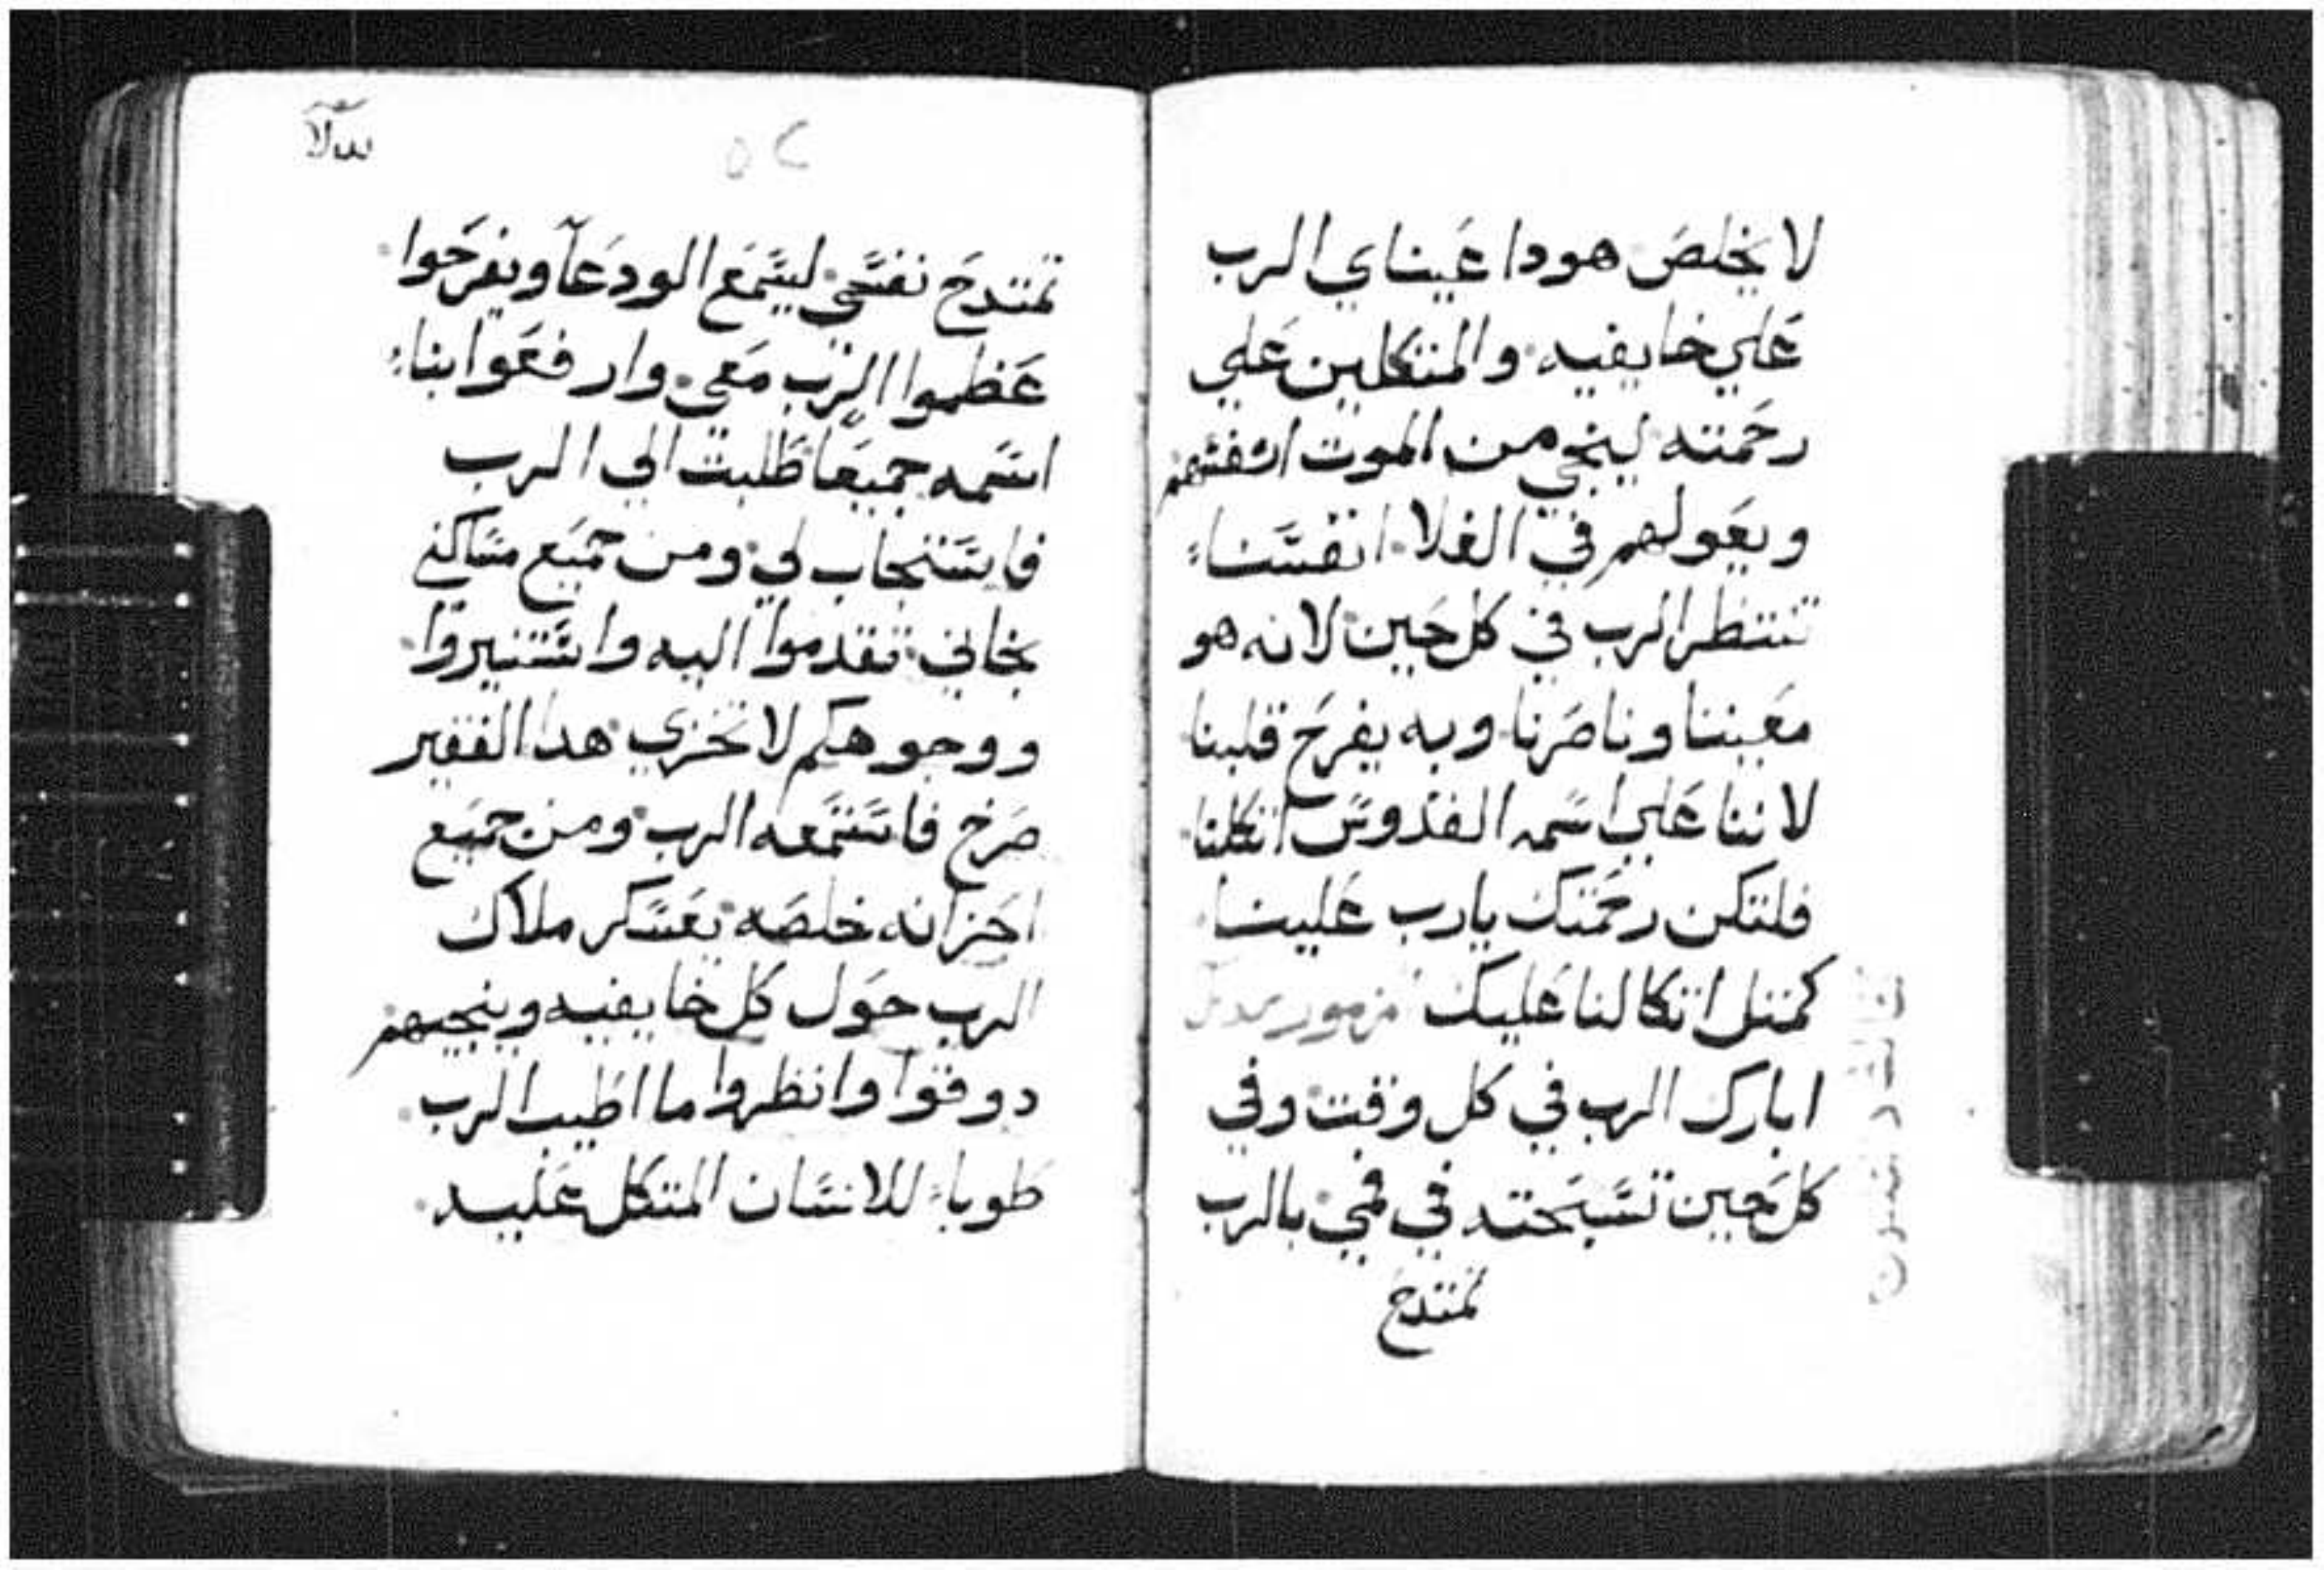 لا يخلص هودا عيناي الرب
علي خايفيه والمتكلين علي
رحمته لينجي من الموت انفسهم
ويعولهم في الغلا انفسنا
تنتظر الرب في كل حين لانه هو
معيننا وناصرنا وبه يفرح قلبنا
لاننا علي اسمه القدوس اتكلنا
فلتكن رحمتك يارب علينا
كمتل اتكالنا عليك مزمور
ابارك الرب في كل وقت وفي
كل حين تسبحته في فمي بالرب
تمتدح
٥٢
تمتدح نفسي ليسمع الودعآ ويفرحوا
عظموا الرب معي وارفعوا بنا
اسمه جميعا طلبت الي الرب
فاستجاب لي ومن جميع مساكني
نجاني تقدموا اليه واستنيروا
ووجوهكم لا تخزي هدا الفقير
صرخ فاستمعه الرب ومن جميع
احزانه خلصه يعسكر ملاك
الرب حول كل خايفيه وينجيهم
دوقوا وانظروا ما اطيب الرب
طوبا للانسان المتكل عليه